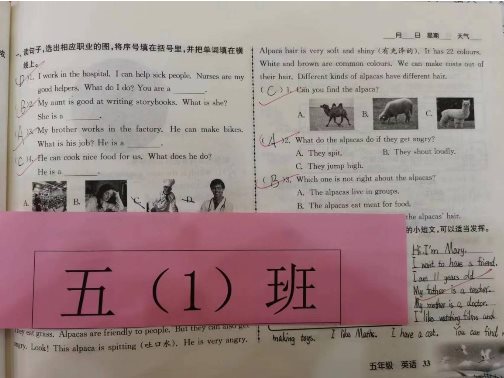 一、读句子,选出相应职业的图,将序号填在括号里,并把单词填在横线上。
1. I work in the hospital. I can help sick people. Nurses are my
good helpers. What do I do? You are a
B 2. My aunt is good at writing storybooks. What is she?
She is a
A 3. My brother works in the factory. He can make bikes.
What is his job? He is a
C 4. He can cook nice food for us. What does he do?
He is a
A. B. C. D.
五(1)班
They eat grass. Alpacas are friendly to people. But they can also get
angry. Look! This alpaca is spitting (吐口水). He is very angry.
月 日 星期 天气
Alpaca hair is very soft and shiny (有光泽的). It has 22 colours.
White and brown are common colours. We can make coats out of
their hair. Different kinds of alpacas have different hair.
( C ) 1. Can you find the alpaca?
A. B. C.
( A ) 2. What do the alpacas do if they get angry?
A. They spit. B. They shout loudly.
C. They jump high.
( B ) 3. Which one is not right about the alpacas?
A. The alpacas live in groups.
B. The alpacas eat meat for food.
the alpacas' hair.
的小短文,可以适当发挥。
Hi, I'm Mary.
I want to have a friend.
I am 11 years old
My father is a teacher.
My mother is a doctor.
I like watching films and
making toys. I like Maths. I have a cat. You can find
五年级 英语 33